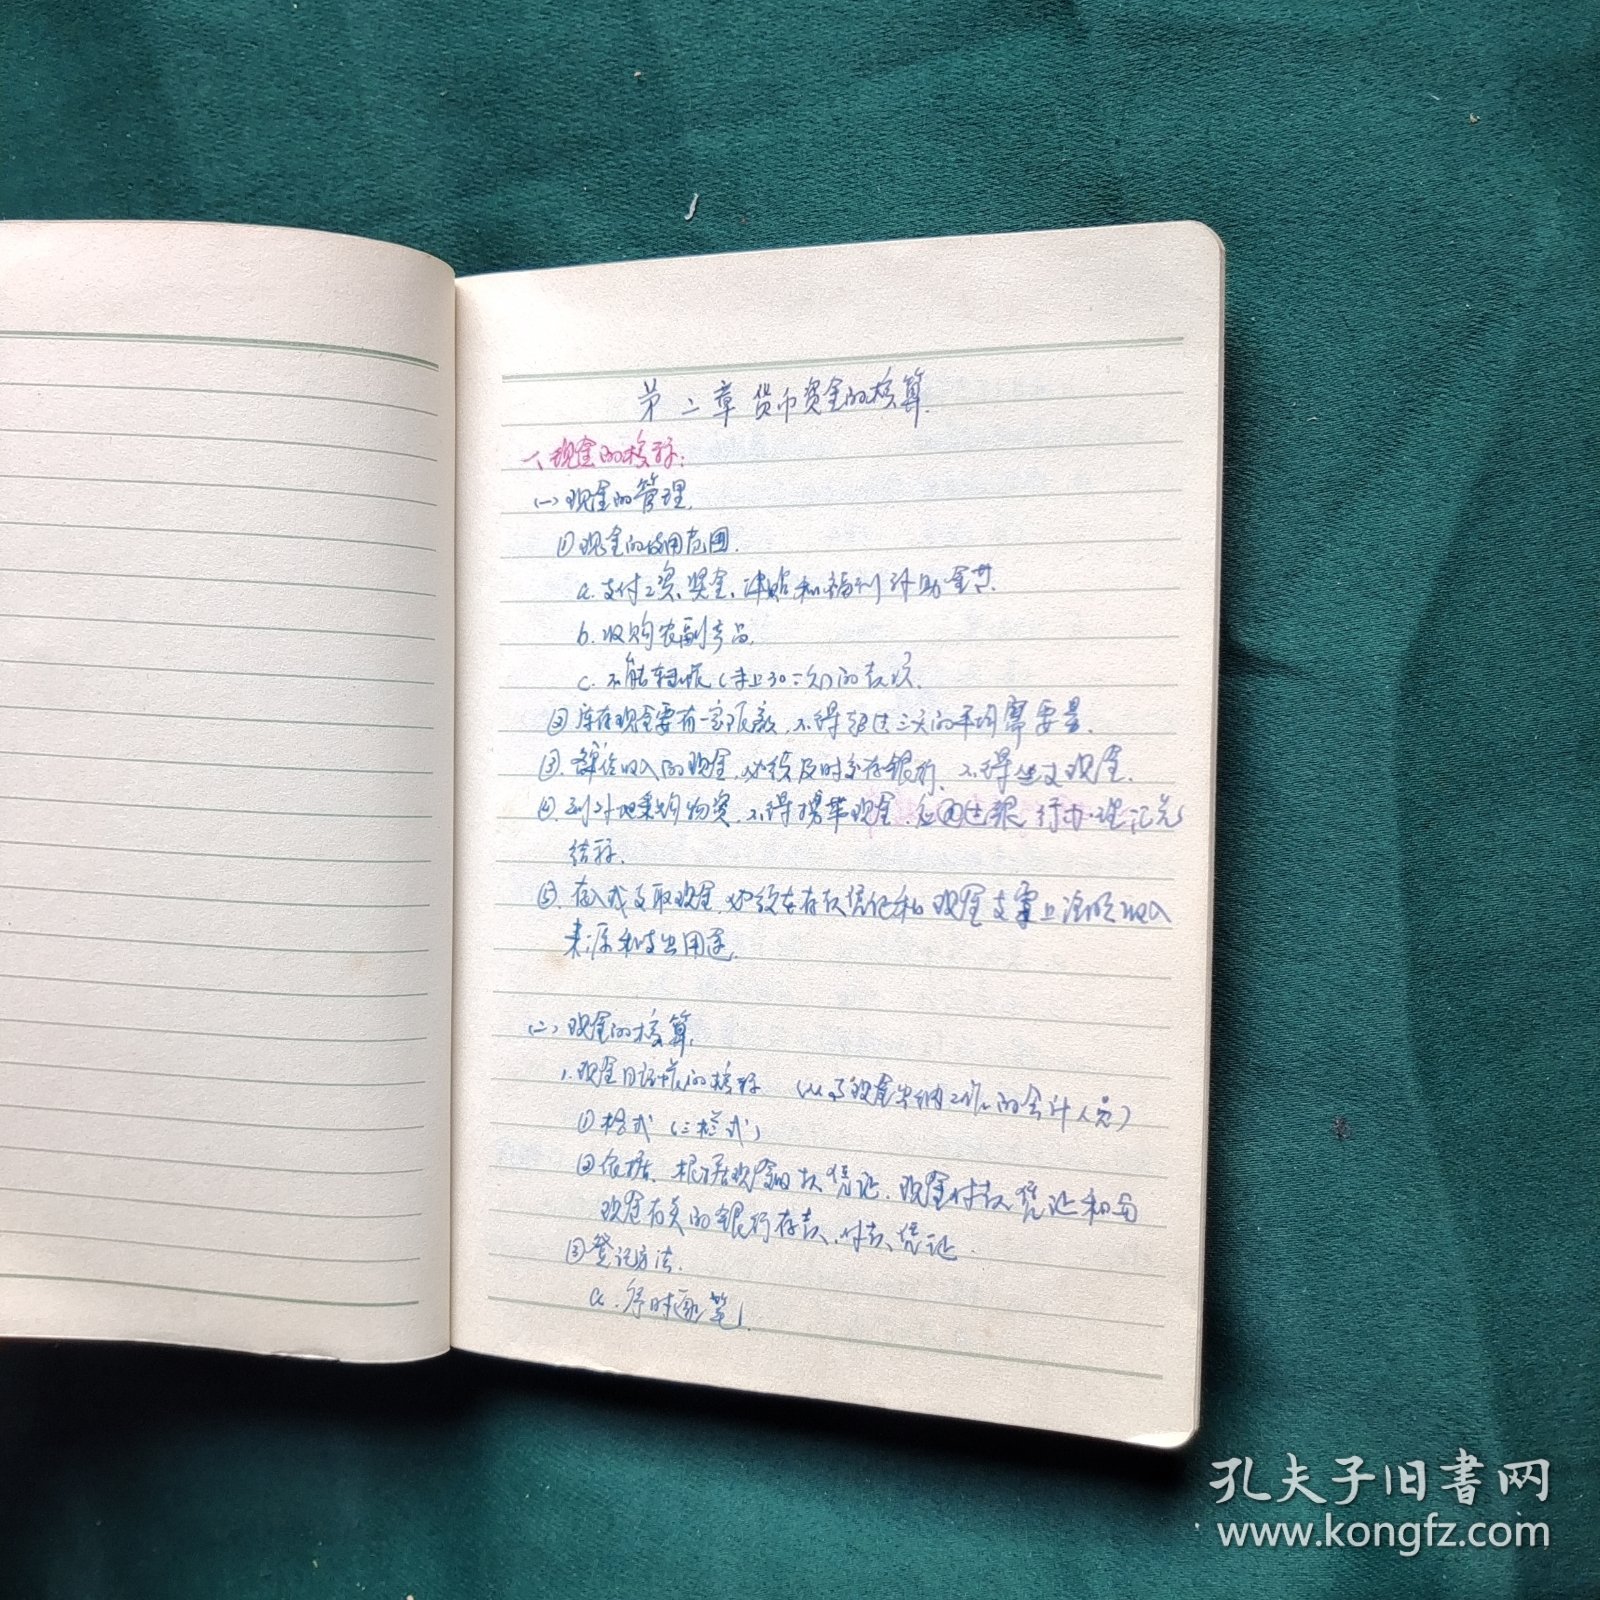 第二章 货币资金的核算.
一、现金的核祘:
(一)现金的管理.
①现金的使用范围.
a.支付工资、奖金、津贴和福利补助金等.
b.收购农副产品.
c.不能转帐(30元以)的款项.
②库存现金要有一定限额,不得超过三天的平均需要量.
③.销货收入的现金,必须及时交存银行,不得坐支现金.
④.到外地采购物资,不得携带现金,应通过银行办理汇兑
结祘.
⑤.存入或支取现金,必须在存款凭证和现金支票上注明收入
来源和支出用途.
(二)现金的核算.
1.现金日记帐的核祘 (从事现金出纳工作的会计人员)
①格式(三栏式)
②依据、根据现金收款凭证、现金付款凭证和与
现金有关的银行存款、付款凭证.
③登记方法.
a.序时逐笔.
孔夫子旧书网
www.kongfz.com